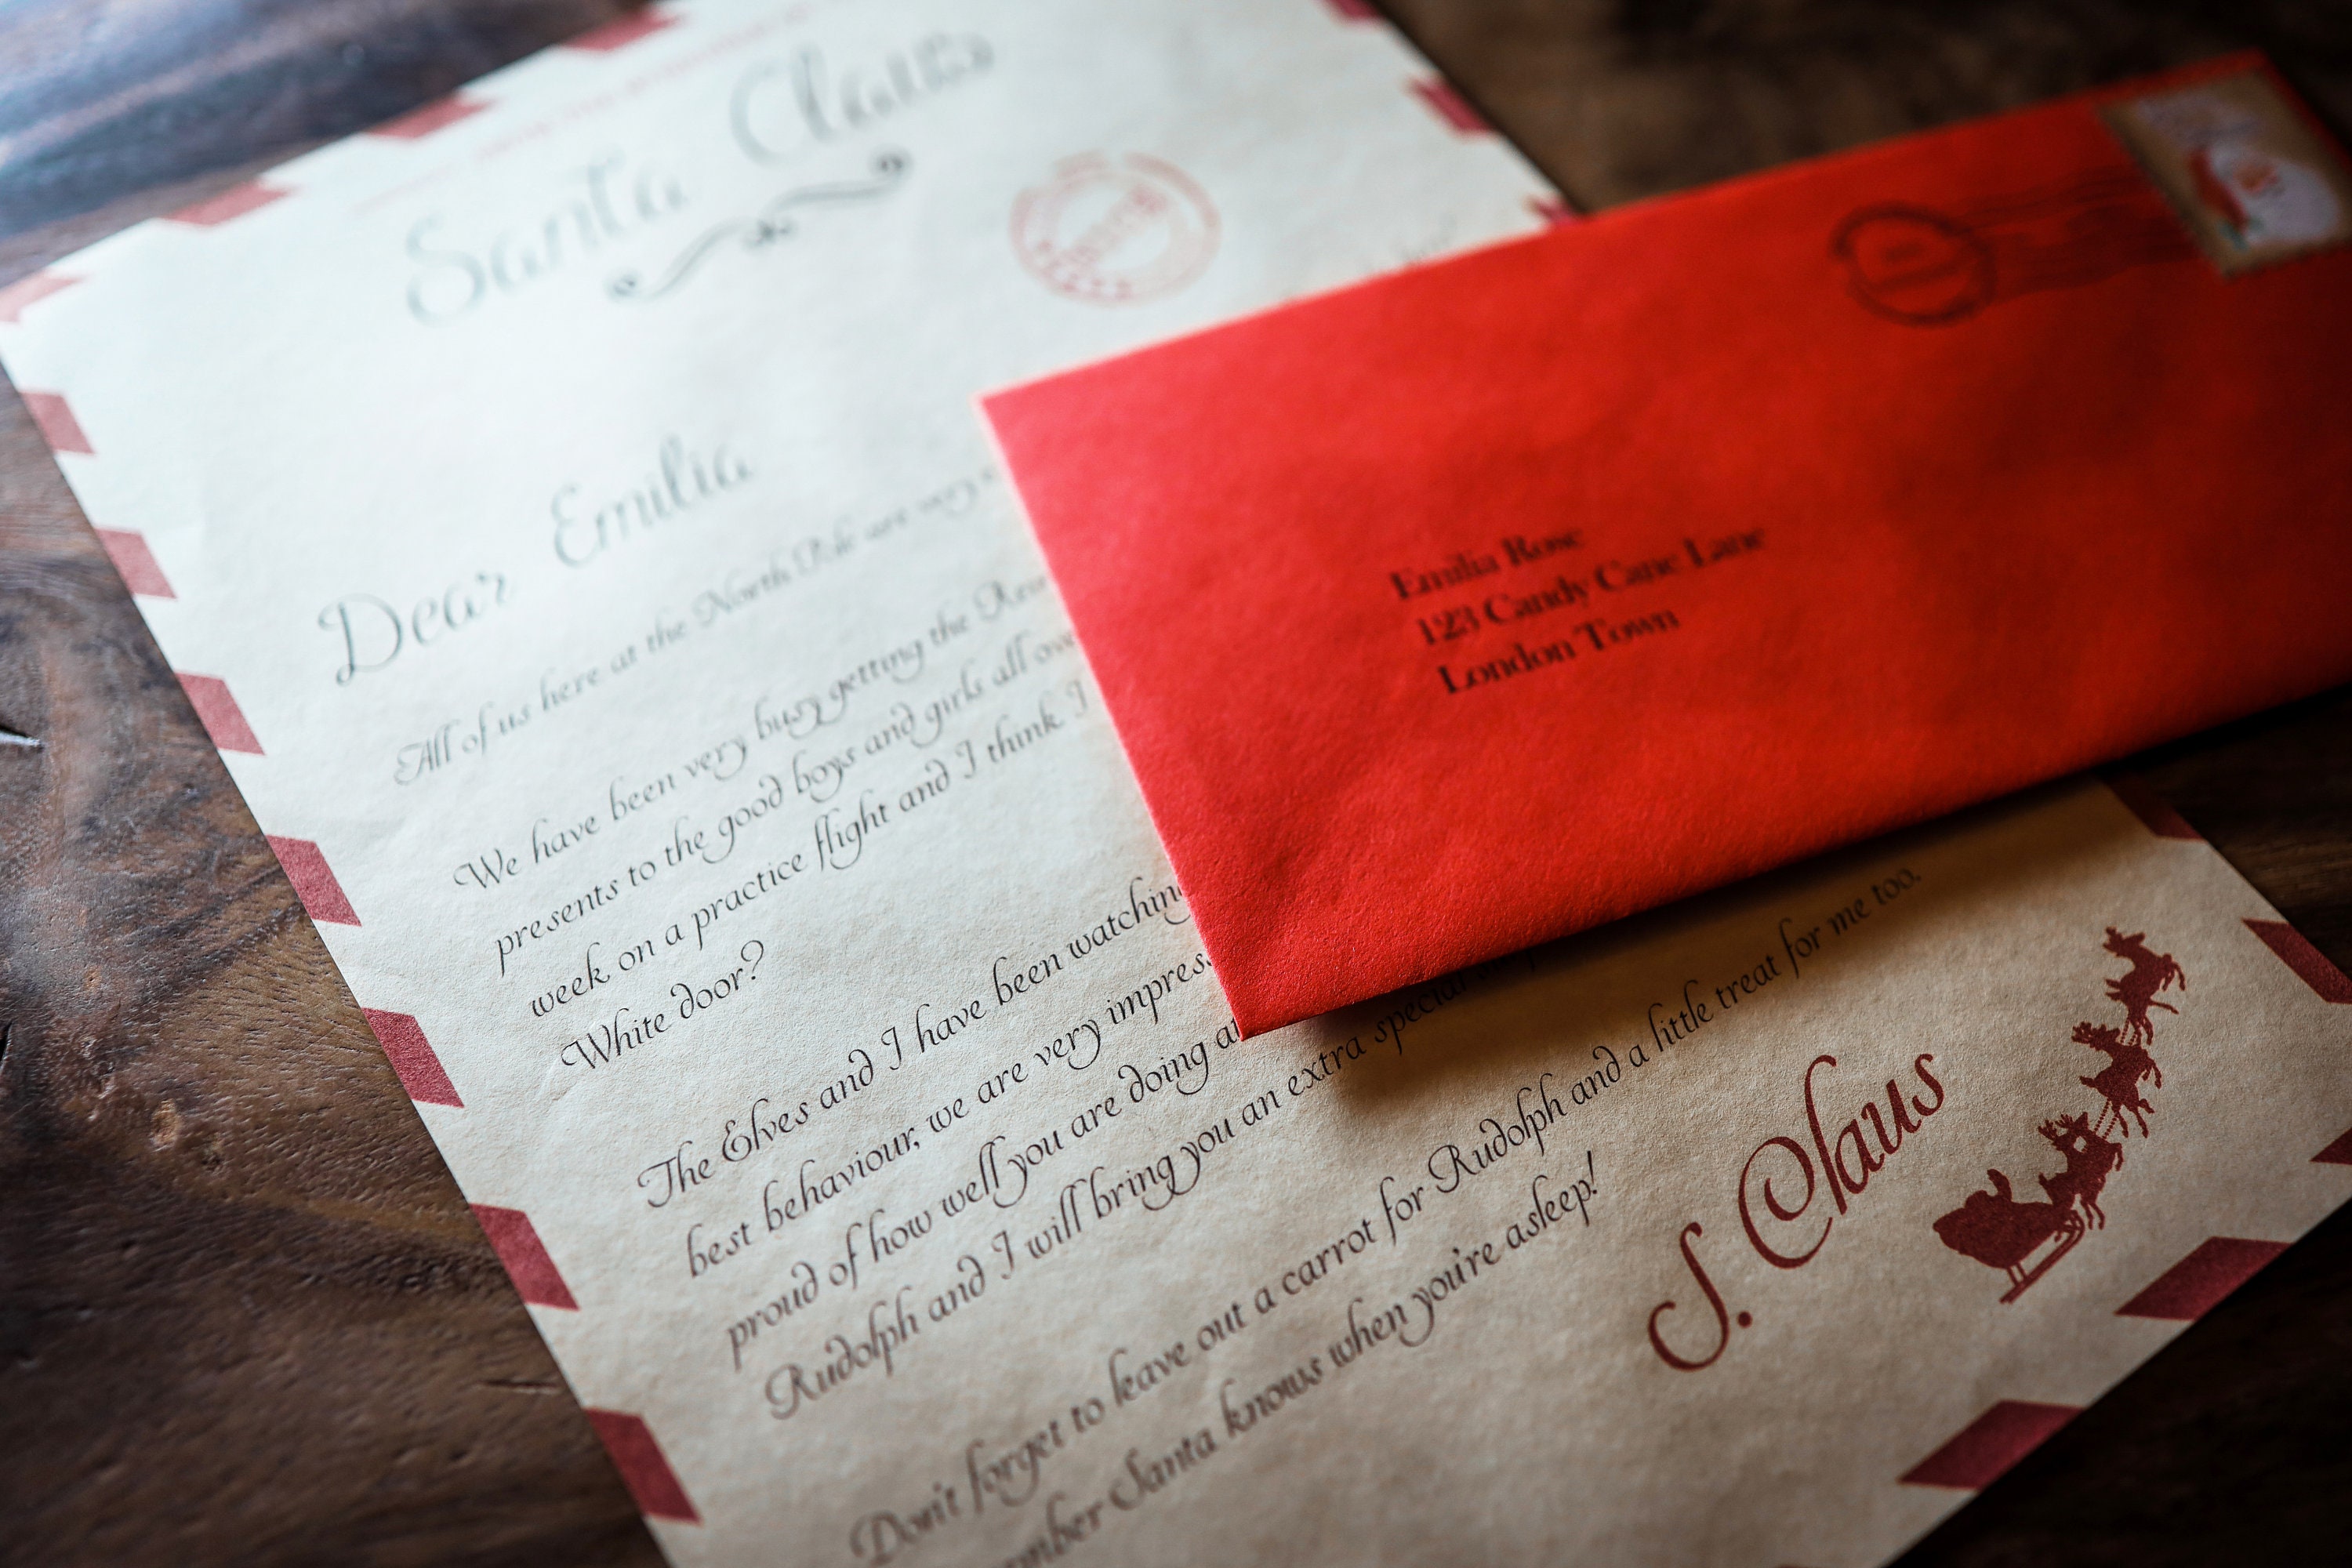 Santa Claus
Dear Emilia
All of us here at the North Pole are very
We have been very busy getting the
presents to the good boys and girls all
week on a practice flight and I think I
White door?
The Elves and I have been watching
best behaviour, we are very
proud of how well you are doing
Rudolph and I will bring you an extra special
Don't forget to leave out a carrot for Rudolph and a little treat for me too.
Santa knows when you're asleep!
S. Claus
Emilia Rose
123 Candy Cane Lane
London Town